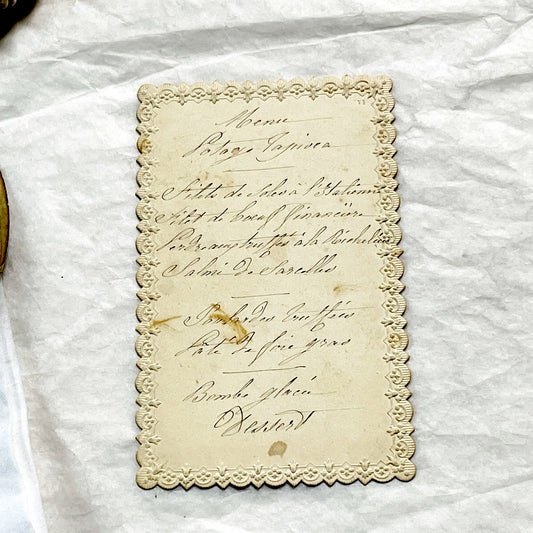 Menu
Potage Tapioca
Filets de Soles à l'Italienne
Filet de bœuf financière
Perdreaux truffés à la Richelieu
Salmi de Sarcelles
Poulardes truffées
Pâté de foie gras
Bombe glacée
Dessert